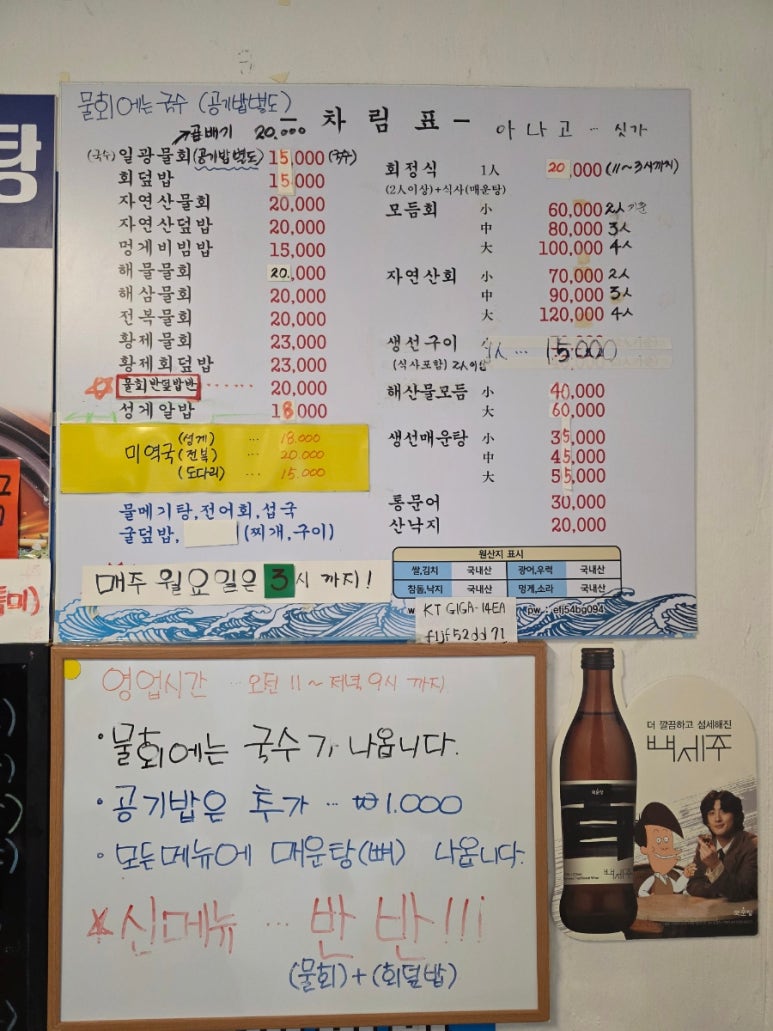 탕
물회에는 국수 (공기밥별도)
- 차 림 표 -
아 나 고 ... 싯가
곱배기 20.000
(국수) 일광물회(공기밥별도) 15,000 (국수)
회덮밥 15,000
자연산물회 20,000
자연산덮밥 20,000
멍게비빔밥 15,000
해물물회 20.,000
해삼물회 20,000
전복물회 20,000
황제물회 23,000
황제회덮밥 23,000
물회반덮밥반 ...... 20,000
성게알밥 18,000
미역국 (성게) ... 18.000
(전복) ... 20.000
(도다리) ... 15.000
물메기탕,전어회,섭국
굴덮밥, (찌개,구이)
매주 월요일은 3시 까지!
회정식 1人 20,000 (11~3시까지)
(2人이상)+식사(매운탕)
모듬회 小 60,000 2人 기준
中 80,000 3人
大 100,000 4人
자연산회 小 70,000 2人
中 90,000 3人
大 120,000 4人
생선구이 1人 ... 15,000
(식사포함) 2人이상
해산물모듬 小 40,000
大 60,000
생선매운탕 小 35,000
中 45,000
大 55,000
통문어 30,000
산낙지 20,000
원산지 표시
쌀,김치 국내산 광어,우럭 국내산
참돔,낙지 국내산 멍게,소라 국내산
w
KT GIGA-14EA
pw : efj54bg094
f1jf52dd71
영업시간 ... 오전 11 ~ 저녁 9시 까지.
·물회에는 국수가 나옵니다.
·공기밥은 추가 ... ₩1.000
·모든메뉴에 매운탕(뼈) 나옵니다.
신메뉴 ... 반 반!!!
(물회)+(회덮밥)
더 깔끔하고 섬세해진
백세주
백세주
국순당